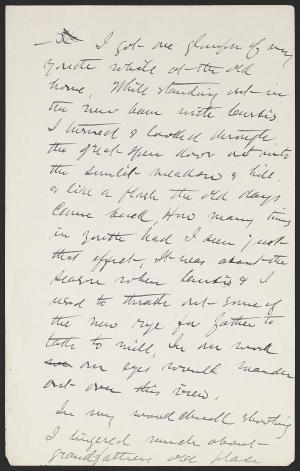 — I got one glimpse of my
youth while at the old
home. While standing out in
the new barn with Curtis
I turned & looked through
the great open door out into
the sunlit meadow & hill.
& like a flash the old days
came back. How many times
in youth had I seen just
that effect. It was about the
season when Curtis & I
used to thrash out some of
the new rye for father to
take to mill. In our work
our eyes would wander
out over this view.
In my woodchuck shooting
I lingered much about
grandfathers old place